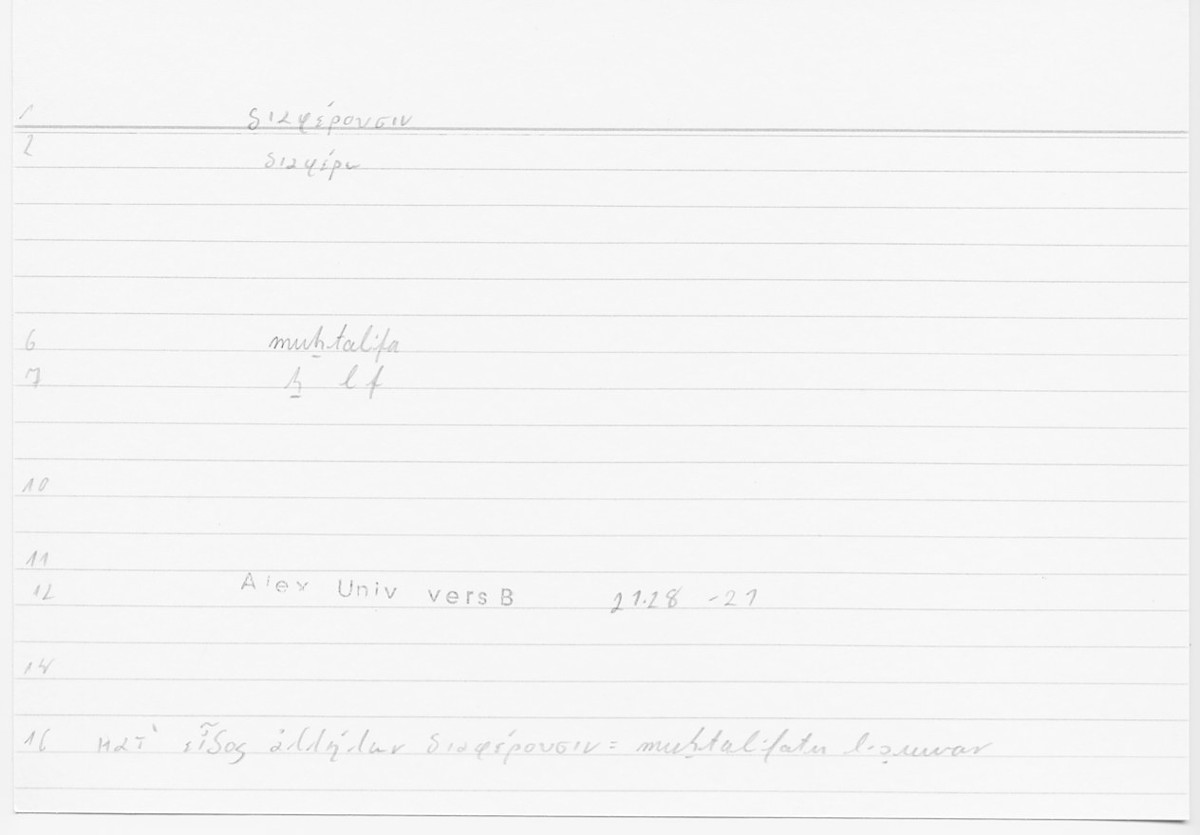 1 διαφέρουσιν
2 διαφέρω
6 muḫtalifa
7 ḫ l f
10
11
12 Alex Univ vers B 21.28 -21
14
16 κατ' εἶδος ἀλλήλων διαφέρουσιν = muḫtalifatu l-ṣuwar